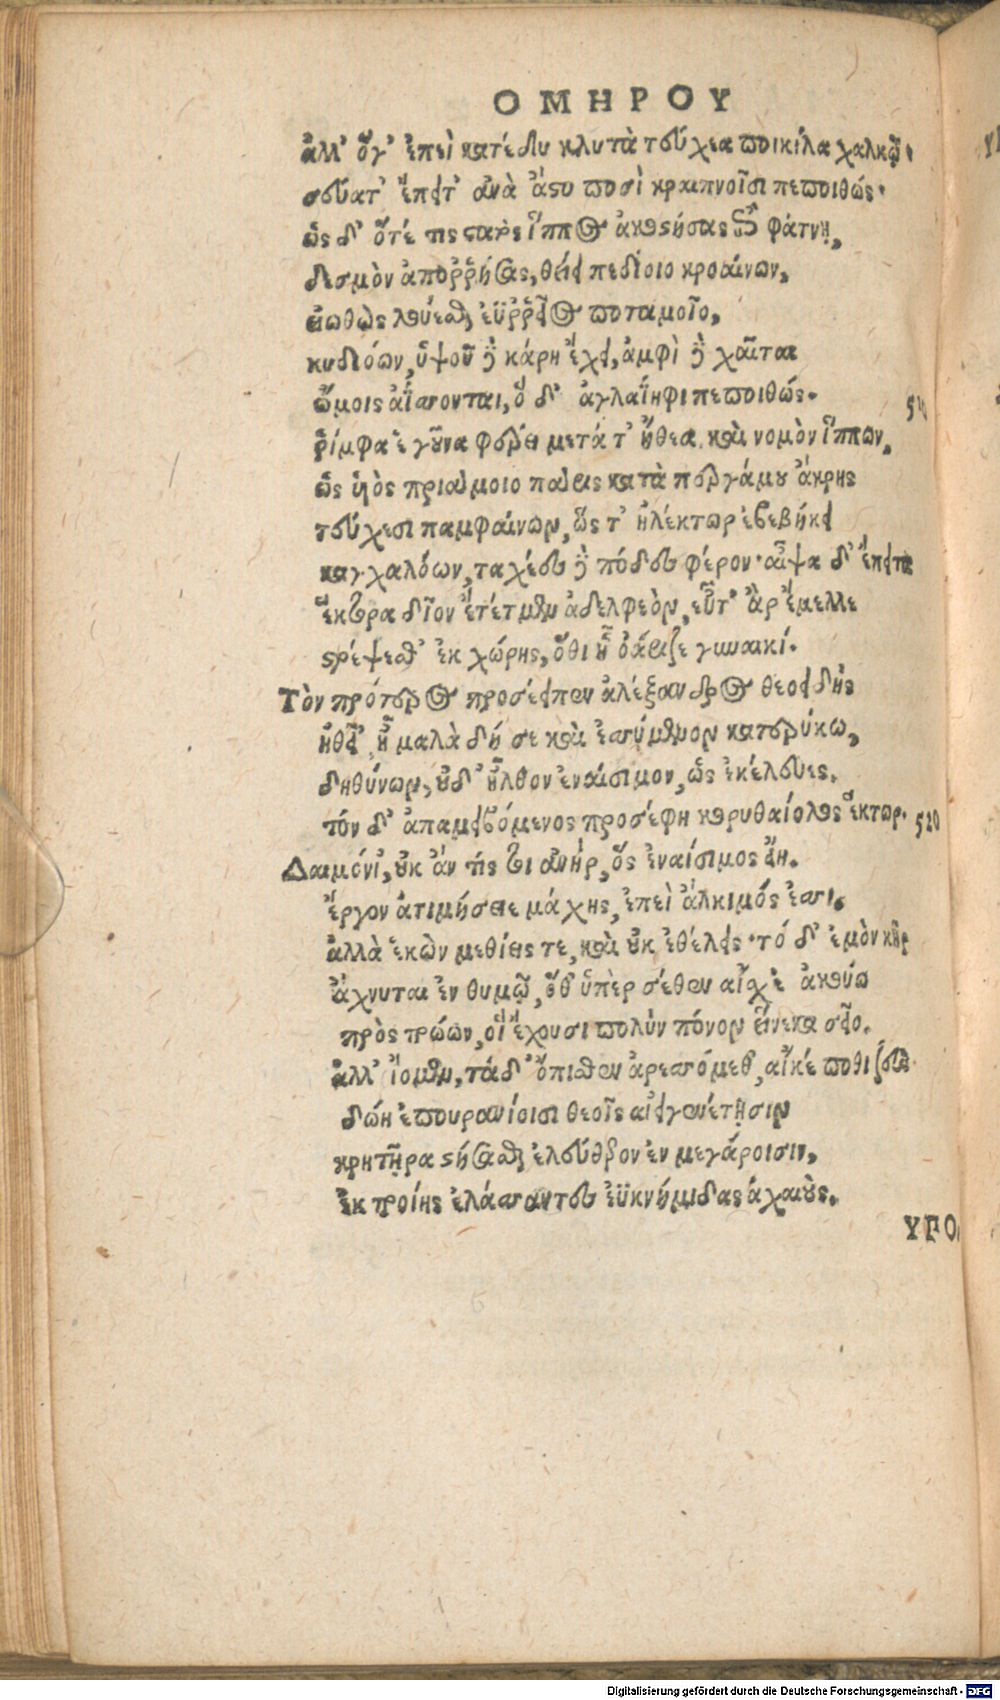 ΟΜΗΡΟΥ
ἀλλ' ὅγ' ἐπεὶ κατέδυ κλυτὰ τεύχεα ποικίλα χαλκῷ,
σεύατ' ἔπειτ' ἀνὰ ἄστυ ποσὶ κραιπνοῖσι πεποιθώς·
ὡς δ' ὅτέ τις στατὸς ἵππος ἀκοστήσας ἐπὶ φάτνῃ,
δεσμὸν ἀποῤῥήξας, θείει πεδίοιο κροαίνων,
εἰωθὼς λούεσθαι ἐϋῤῥεῖος ποταμοῖο,
κυδιόων, ὑψοῦ δὲ κάρη ἔχει, ἀμφὶ δὲ χαῖται
ὤμοις ἀΐσσονται, ὁ δ' ἀγλαΐηφι πεποιθώς·
510
ῥίμφα ἑ γοῦνα φέρει μετά τ' ἤθεα καὶ νομὸν ἵππων,
ὣς ὑὸς πριάμοιο πάρις κατὰ περγάμου ἄκρης
τεύχεσι παμφαίνων, ὥς τ' ἠλέκτωρ ἐβεβήκει
καγχαλόων, ταχέες δὲ πόδες φέρον· αἶψα δ' ἔπειτα
ἕκτορα δῖον ἔτετμεν ἀδελφεὸν, εὖτ' ἂρ ἔμελλε
στρέψεσθ' ἐκ χώρης, ὅθι ᾗ ὀάριζε γυναικί.
Τὸν πρότερος προσέειπεν ἀλέξανδρος θεοειδής
ἠθεῖ', ἦ μαλὰ δή σε καὶ ἐσσύμενον κατερύκω,
δηθύνων, οὐδ' ἦλθον ἐναίσιμον, ὡς ἐκέλευες.
τόν δ' ἀπαμειβόμενος προσέφη κορυθαίολος ἕκτωρ.
520
Δαιμόνι', οὐκ ἄν τίς τοι ἀνὴρ, ὅς ἐναίσιμος εἴη.
ἔργον ἀτιμήσειε μάχης, ἐπεὶ ἄλκιμός ἐσσι.
ἀλλὰ ἑκὼν μεθίεις τε, καὶ οὐκ ἐθέλεις· τό δ' ἐμὸν κῆρ
ἄχνυται ἐν θυμῷ, ὅθ' ὑπὲρ σέθεν αἴσχε' ἀκούω
πρὸς τρώων, οἳ ἔχουσι πολὺν πόνον εἵνεκα σεῖο.
ἀλλ' ἴομεν, τάδ' ὄπισθεν ἀρεσσόμεθ', αἴκέ ποθι ζεὺς
δώῃ ἐπουρανίοισι θεοῖς αἰειγενέτῃσιν
κρητῆρα στήσασθαι ἐλεύθερον ἐν μεγάροισιν,
ἐκ τροίης ἐλάσσαντες ἐϋκνήμιδας ἀχαιούς.
ΥΠΟ
Digitalisierung gefördert durch die Deutsche Forschungsgemeinschaft - DFG